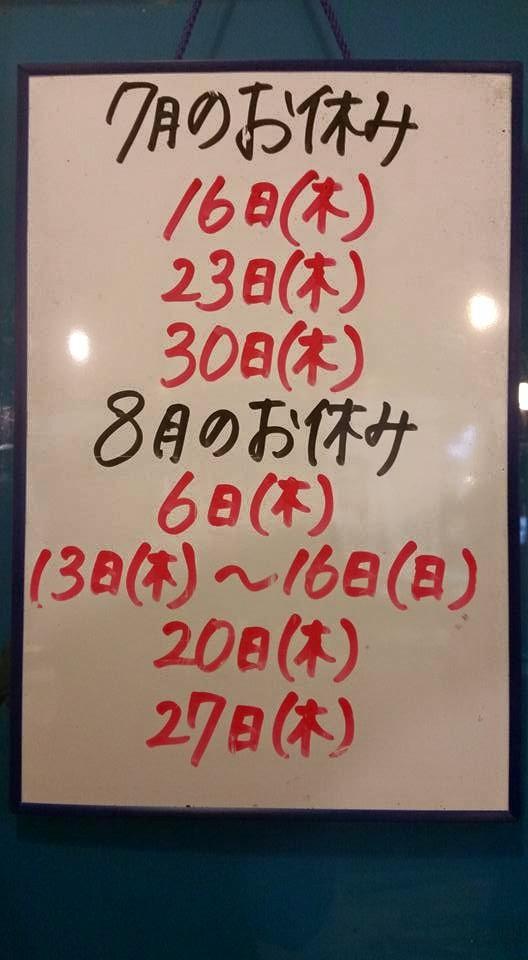 7月のお休み
16日(木)
23日(木)
30日(木)
8月のお休み
6日(木)
13日(木)～16日(日)
20日(木)
27日(木)